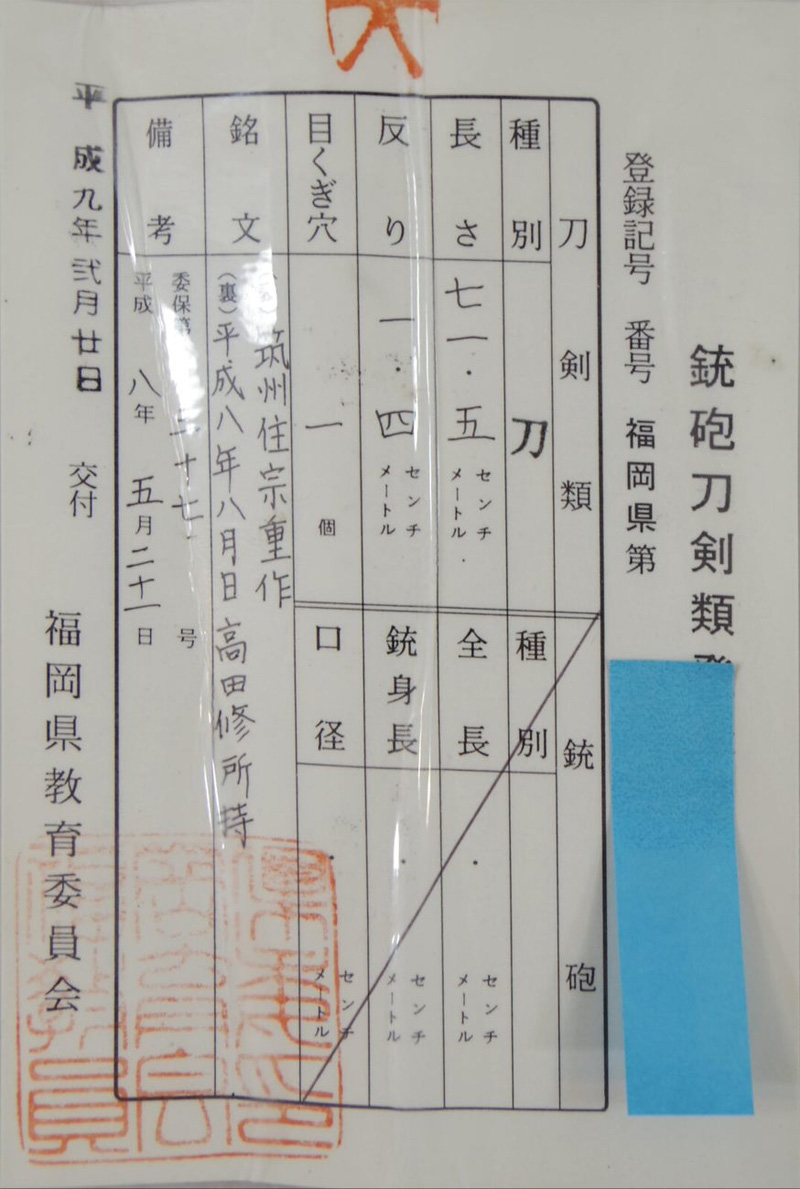 銃砲刀剣類
登録記号 番号 福岡県第
刀剣類
種別 刀
長さ 七一・五 センチメートル
反り 一・四 センチメートル
目くぎ穴 一 個
銘文
筑州住宗重作
(裏)平成八年八月日 高田修所持
備考
委保第 三十七 号
平成 八年 五月二十一日
銃砲
種別
全長 ・ センチメートル
銃身長 ・ センチメートル
口径 ・ センチメートル
平成九年弐月廿日 交付
福岡県教育委員会